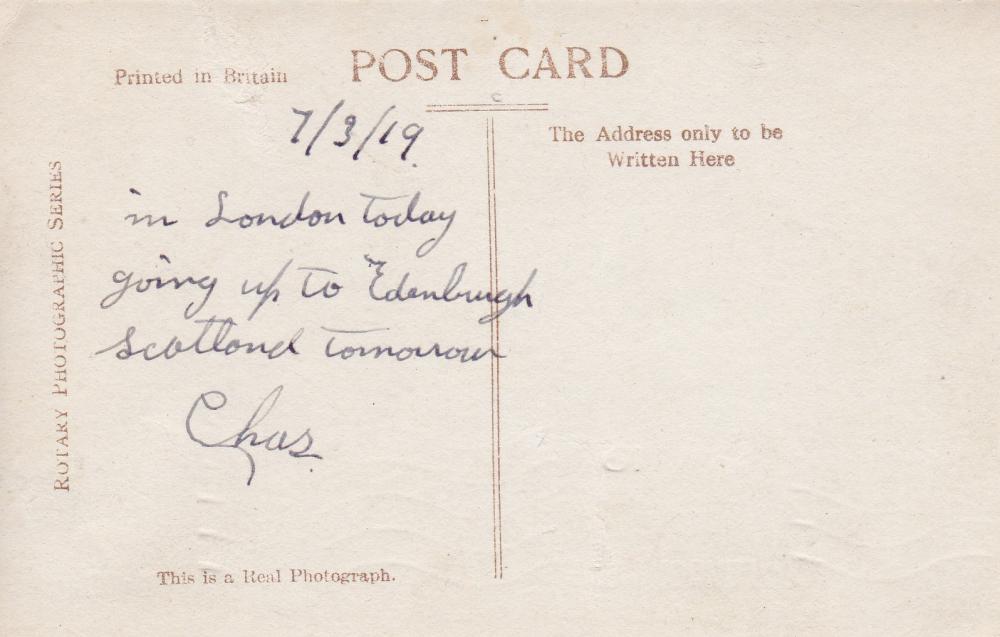 POST CARD
Printed in Britain
7/3/19
The Address only to be
Written Here
in London today
going up to Edenburgh
Scotland tomorrow
Chas
ROTARY PHOTOGRAPHIC SERIES
This is a Real Photograph.